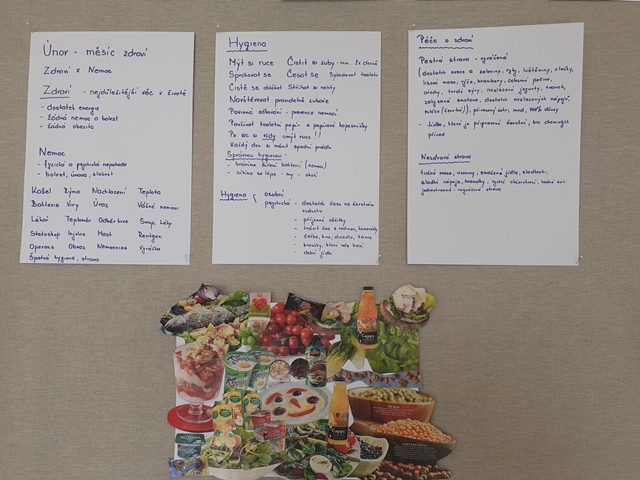 Únor - měsíc zdraví
Zdraví x Nemoc
Zdraví - nejdůležitější věc v životě
- dostatek energie
- žádná nemoc a bolest
- žádná obezita
Nemoc
- fyzická a psychická nepohoda
- bolest, únava, slabost
Kašel Rýma Nachlazení Teplota
Bakterie Viry Úraz Vážná nemoc
Lékař Teploměr Odběr krve Sirup, léky
Injekce Mast Rentgen
Operace Obvaz Nemocnice
Špatná hygiena, strava
Hygiena
Mýt si ruce Čistit si zuby
Sprchovat se Česat se Splachovat toaletu
Čistě se oblékat Stříhat si nehty
Navštěvovat pravidelně zubaře
očkování - prevence nemocí
Používat toaletní papír a papírové kapesníčky
Po WC si vždy umýt ruce!!
Každý den si měnit spodní prádlo
Správnou hygienou:
- bráníme šíření bakterií (nemocí)
- cítíme se lépe - my i okolí
Hygiena osobní
psychická - dostatek času na čerstvém
vzduchu
- příjemné zážitky
- trávit čas s rodinou, kamarády
- četba, hra, divadlo, tanec
- kroužky, které nás baví
- dobré jídlo
Péče o zdraví
Pestrá strava - vyvážená
(dostatek ovoce a zeleniny, ryby, luštěniny, vločky,
libové maso, rýže, brambory, celozrnné pečivo,
ořechy, tvrdé sýry, neslazené jogurty, tvaroh,
zakysaná smetana, dostatek neslazených nápojů,
med, 100% džusy
- Jídlo, které je připraveno čerstvé, bez chemických
přísad
Nezdravá strava
tučné maso, uzeniny, smažená jídla, sladkosti,
sladké nápoje, hranolky
jednostranná - nevyvážená strava
Cappy
Cappy